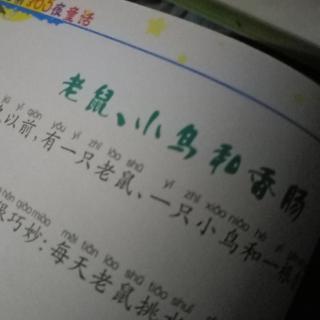 300夜童话
老鼠、小鸟和香肠
yǐ qián yǒu yì zhī lǎo shǔ yì zhī xiǎo niǎo hé yì
以前,有一只老鼠、一只小鸟和一根
hěn qiǎo miào měi tiān lǎo shǔ tiāo shuǐ
很巧妙:每天老鼠挑水